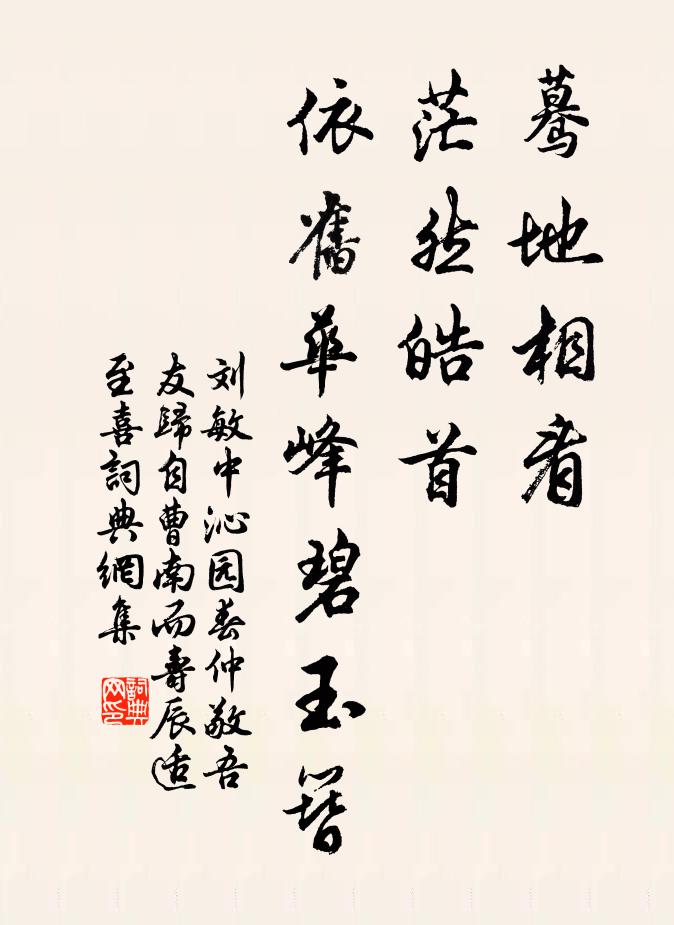 驀地相看
茫然皓首
依舊華峰碧玉簪
刘敏中沁园春仲敬吾
友歸自曹南而壽辰适
至喜詞典網集
詞典
网印